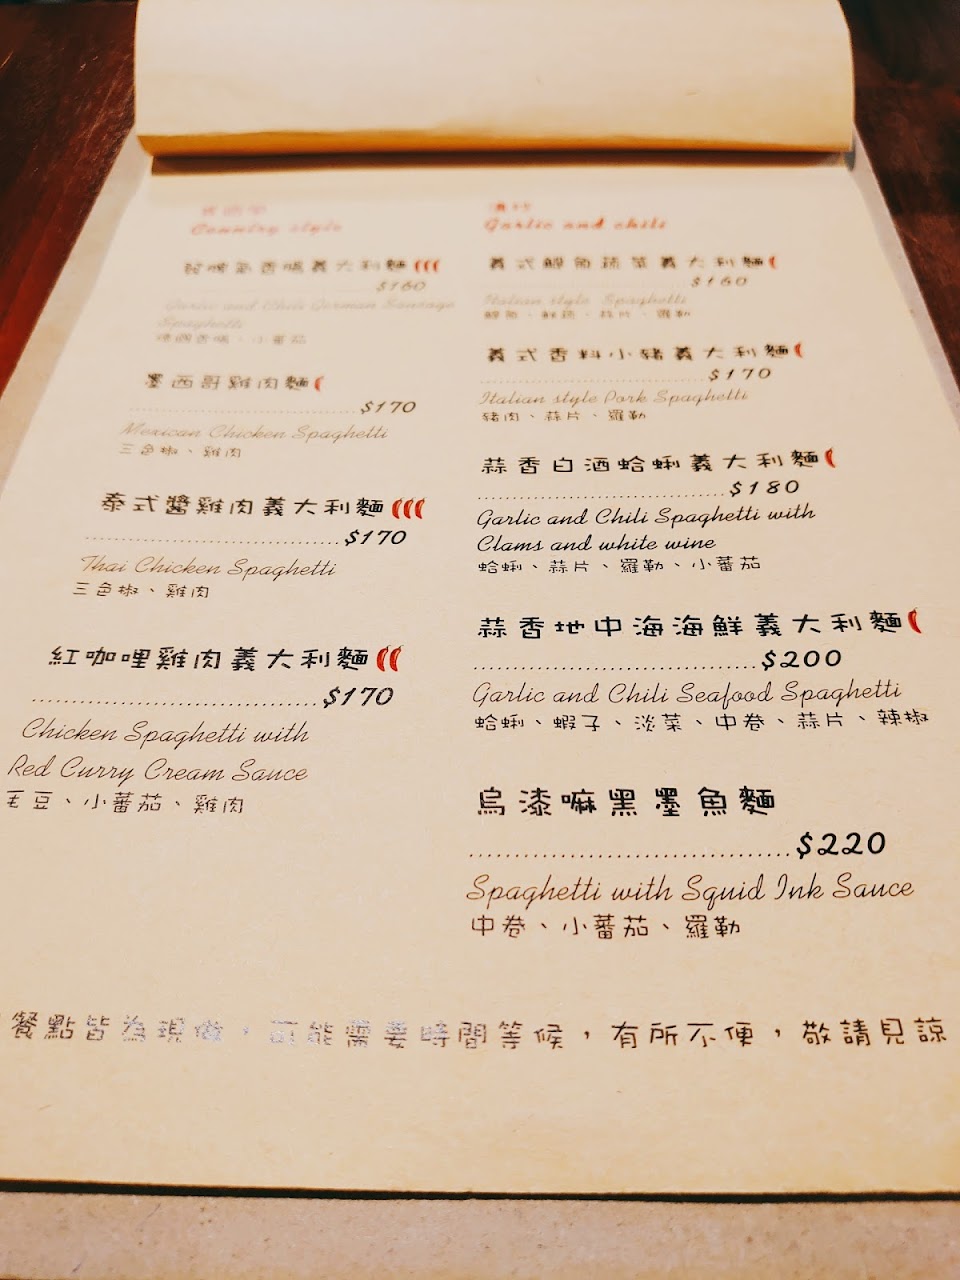 Country style
發嘜氣香腸義大利麵
$160
Garlic and Chili German Sausage
Spaghetti
德國香腸、小蕃茄
墨西哥雞肉麵
$170
Mexican Chicken Spaghetti
三色椒、雞肉
泰式醬雞肉義大利麵
$170
Thai Chicken Spaghetti
三色椒、雞肉
紅咖哩雞肉義大利麵
$170
Chicken Spaghetti with
Red Curry Cream Sauce
毛豆、小蕃茄、雞肉
清炒
Garlic and chili
義式鯷魚蔬菜義大利麵
$160
Italian style Spaghetti
鯷魚、鮮蔬、蒜片、羅勒
義式香料小豬義大利麵
$170
Italian style Pork Spaghetti
豬肉、蒜片、羅勒
蒜香白酒蛤蜊義大利麵
$180
Garlic and Chili Spaghetti with
Clams and white wine
蛤蜊、蒜片、羅勒、小蕃茄
蒜香地中海海鮮義大利麵
$200
Garlic and Chili Seafood Spaghetti
蛤蜊、蝦子、淡菜、中卷、蒜片、辣椒
烏漆嘛黑墨魚麵
$220
Spaghetti with Squid Ink Sauce
中卷、小蕃茄、羅勒
餐點皆為現做，可能需要時間等候，有所不便，敬請見諒